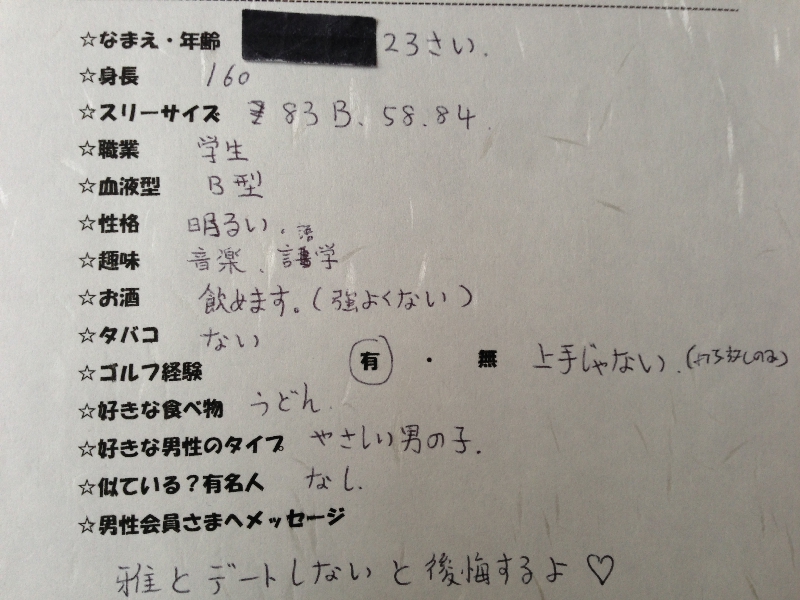 ☆なまえ・年齢 23さい.
☆身長 160
☆スリーサイズ 83 B、58.84.
☆職業 学生
☆血液型 B型
☆性格 明るい.
☆趣味 音楽、語学
☆お酒 飲めます。(強よくない)
☆タバコ ない
☆ゴルフ経験 有 ・ 無 上手じゃない.(打ち放しのみ)
☆好きな食べ物 うどん.
☆好きな男性のタイプ やさしい男の子.
☆似ている?有名人 なし.
☆男性会員さまへメッセージ
雅とデートしないと後悔するよ♡